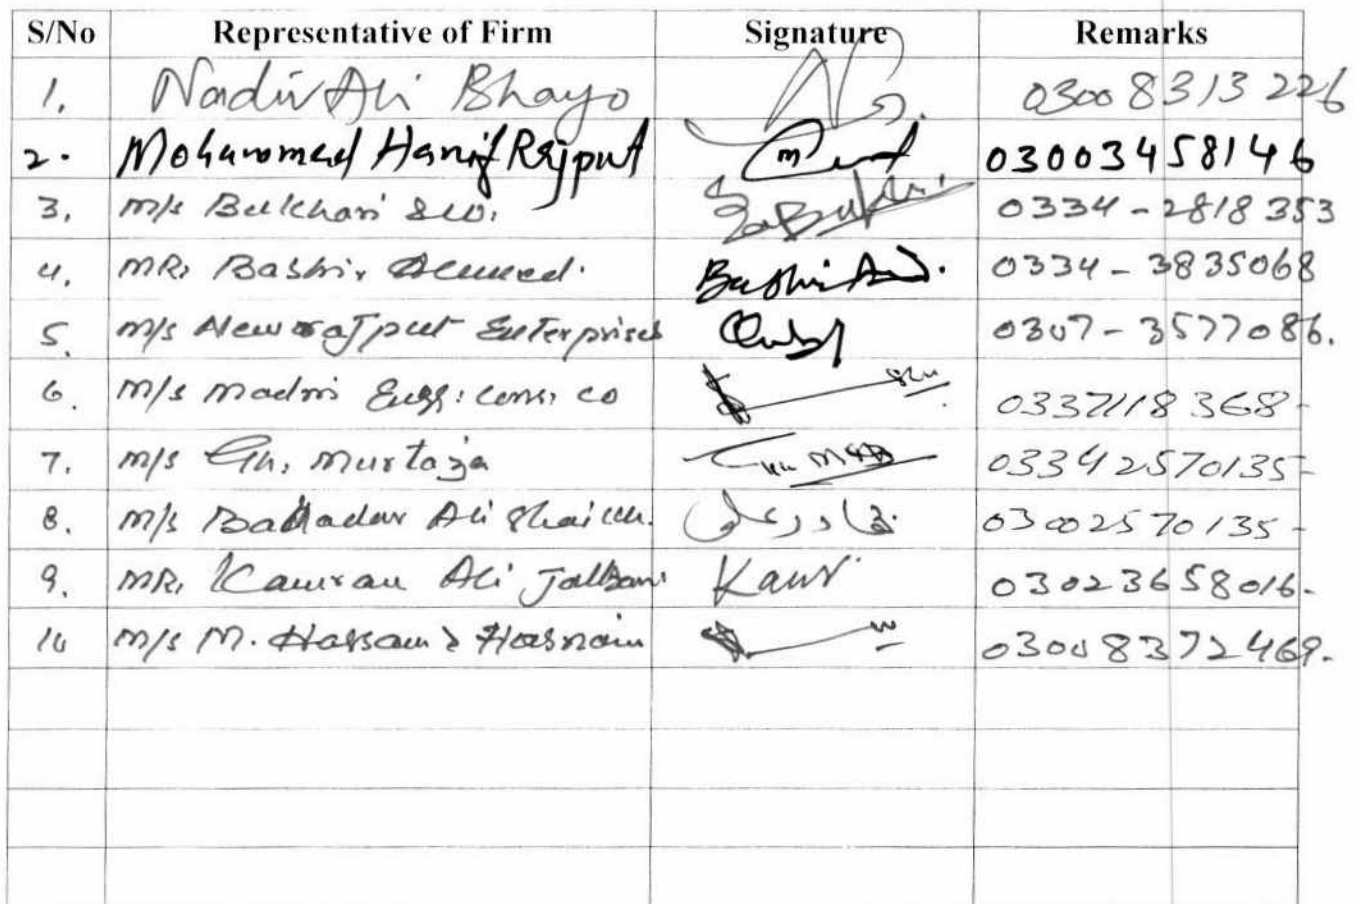 S/No Representative of Firm Signature Remarks
1. Nadir Ali Bhayo 03008313226
2. Mohammad Hanif Rajput 03003458146
3. M/s Bukhari & co. Bukhari 0334-2818353
4. MR. Bashir Ahmed. Bashir 0334-3835068
5. M/s New Rajput Enterprises 0307-3577086.
6. M/s Madni Engg: Cons: co 03371118368-
7. M/s Gh. Murtaza 03342570135-
8. M/s Bahadar Ali Shaikh. بهادر علي 03002570135-
9. MR. Kamran Ali Jalbani Kamr 03023658016-
10 M/s M. Hassan & Hasnain 03008372469-